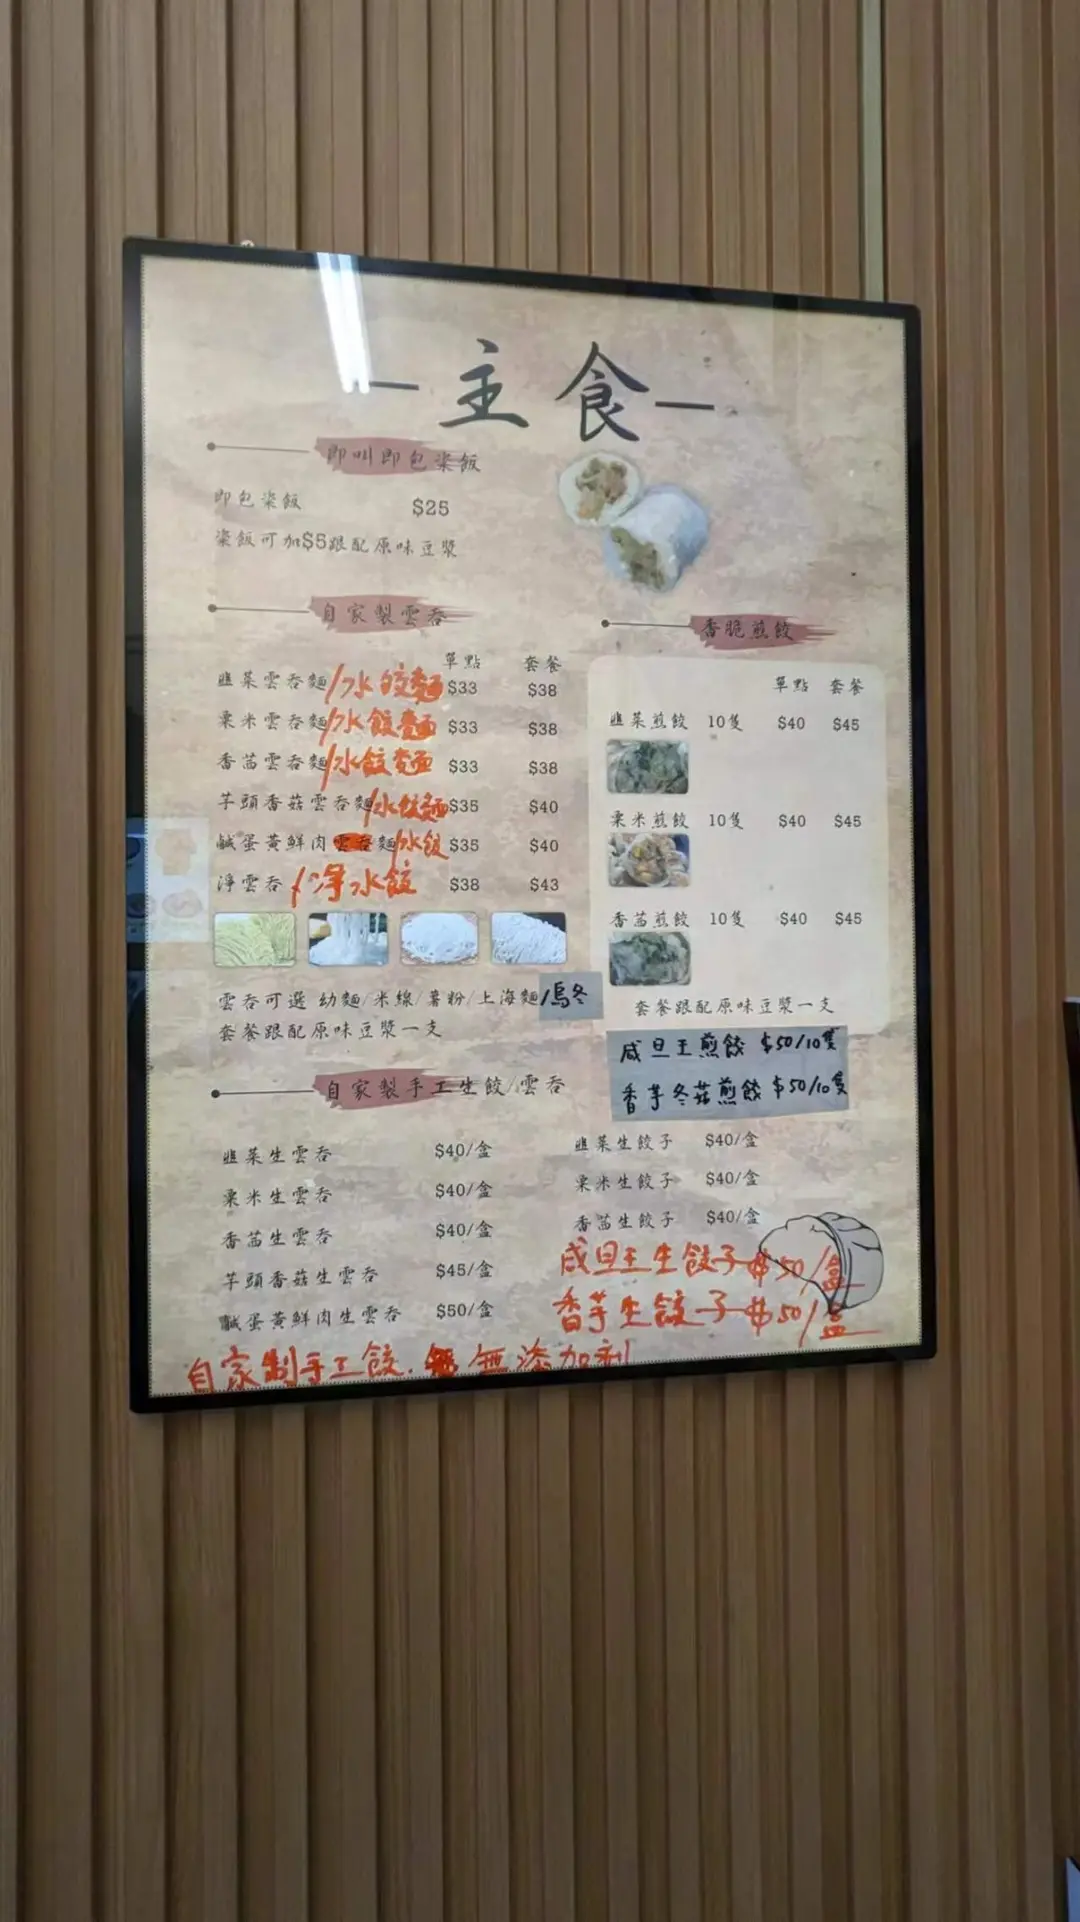 主食
即叫即包粢飯
即包粢飯 $25
粢飯可加$5跟配原味豆漿
自家製雲吞
單點 套餐
韮菜雲吞麵/水餃麵 $33 $38
粟米雲吞麵/水餃麵 $33 $38
香茜雲吞麵/水餃麵 $33 $38
芋頭香菇雲吞麵/水餃麵 $35 $40
鹹蛋黃鮮肉雲吞麵/水餃 $35 $40
淨雲吞/淨水餃 $38 $43
雲吞可選 幼麵/米線/薯粉/上海麵/烏冬
套餐跟配原味豆漿一支
香脆煎餃
單點 套餐
韮菜煎餃 10隻 $40 $45
粟米煎餃 10隻 $40 $45
香茜煎餃 10隻 $40 $45
套餐跟配原味豆漿一支
咸旦王煎餃 $50/10隻
香芋冬菇煎餃 $50/10隻
自家製手工生餃/雲吞
韮菜生雲吞 $40/盒
粟米生雲吞 $40/盒
香茜生雲吞 $40/盒
芋頭香菇生雲吞 $45/盒
鹹蛋黃鮮肉生雲吞 $50/盒
韮菜生餃子 $40/盒
粟米生餃子 $40/盒
香茜生餃子 $40/盒
咸旦王生餃子 $50/盒
香芋生餃子 $50/盒
自家制手工餃.無添加剂